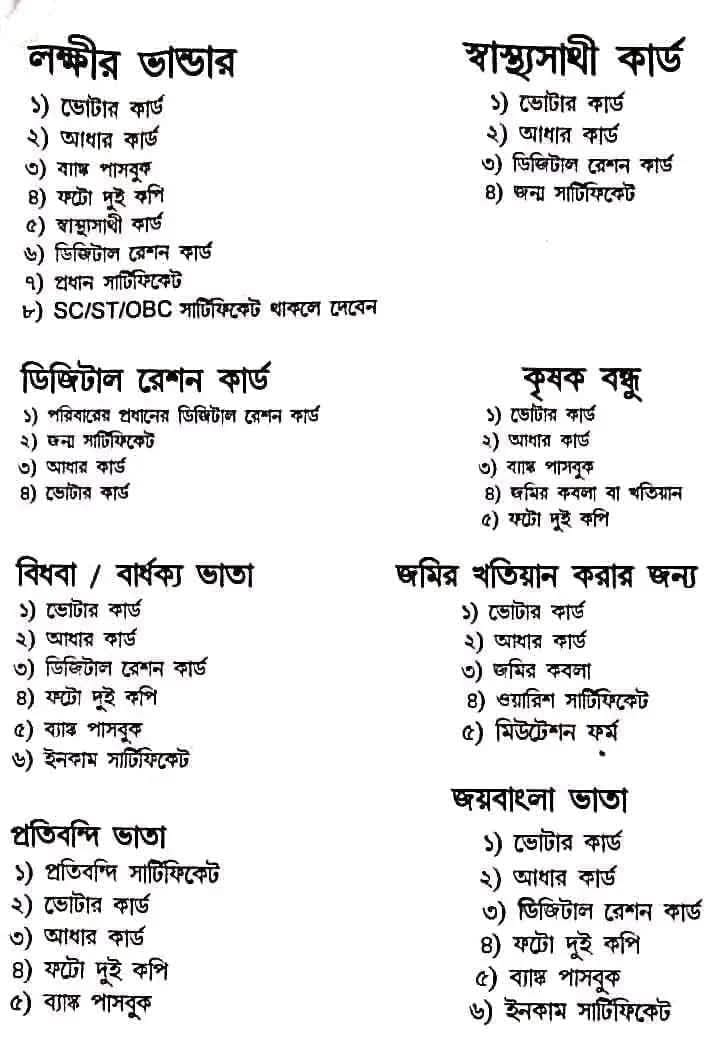 লক্ষীর ভান্ডার
১) ভোটার কার্ড
২) আধার কার্ড
৩) ব্যাঙ্ক পাসবুক
৪) ফটো দুই কপি
৫) স্বাস্থ্যসাথী কার্ড
৬) ডিজিটাল রেশন কার্ড
৭) প্রধান সার্টিফিকেট
৮) SC/ST/OBC সার্টিফিকেট থাকলে দেবেন
স্বাস্থ্যসাথী কার্ড
১) ভোটার কার্ড
২) আধার কার্ড
৩) ডিজিটাল রেশন কার্ড
৪) জন্ম সার্টিফিকেট
ডিজিটাল রেশন কার্ড
১) পরিবারের প্রধানের ডিজিটাল রেশন কার্ড
২) জন্ম সার্টিফিকেট
৩) আধার কার্ড
৪) ভোটার কার্ড
কৃষক বন্ধু
১) ভোটার কার্ড
২) আধার কার্ড
৩) ব্যাঙ্ক পাসবুক
৪) জমির কবলা বা খতিয়ান
৫) ফটো দুই কপি
বিধবা / বার্ধক্য ভাতা
১) ভোটার কার্ড
২) আধার কার্ড
৩) ডিজিটাল রেশন কার্ড
৪) ফটো দুই কপি
৫) ব্যাঙ্ক পাসবুক
৬) ইনকাম সার্টিফিকেট
জমির খতিয়ান করার জন্য
১) ভোটার কার্ড
২) আধার কার্ড
৩) জমির কবলা
৪) ওয়ারিশ সার্টিফিকেট
৫) মিউটেশন ফর্ম
প্রতিবন্দি ভাতা
১) প্রতিবন্দি সার্টিফিকেট
২) ভোটার কার্ড
৩) আধার কার্ড
৪) ফটো দুই কপি
৫) ব্যাঙ্ক পাসবুক
জয়বাংলা ভাতা
১) ভোটার কার্ড
২) আধার কার্ড
৩) ডিজিটাল রেশন কার্ড
৪) ফটো দুই কপি
৫) ব্যাঙ্ক পাসবুক
৬) ইনকাম সার্টিফিকেট